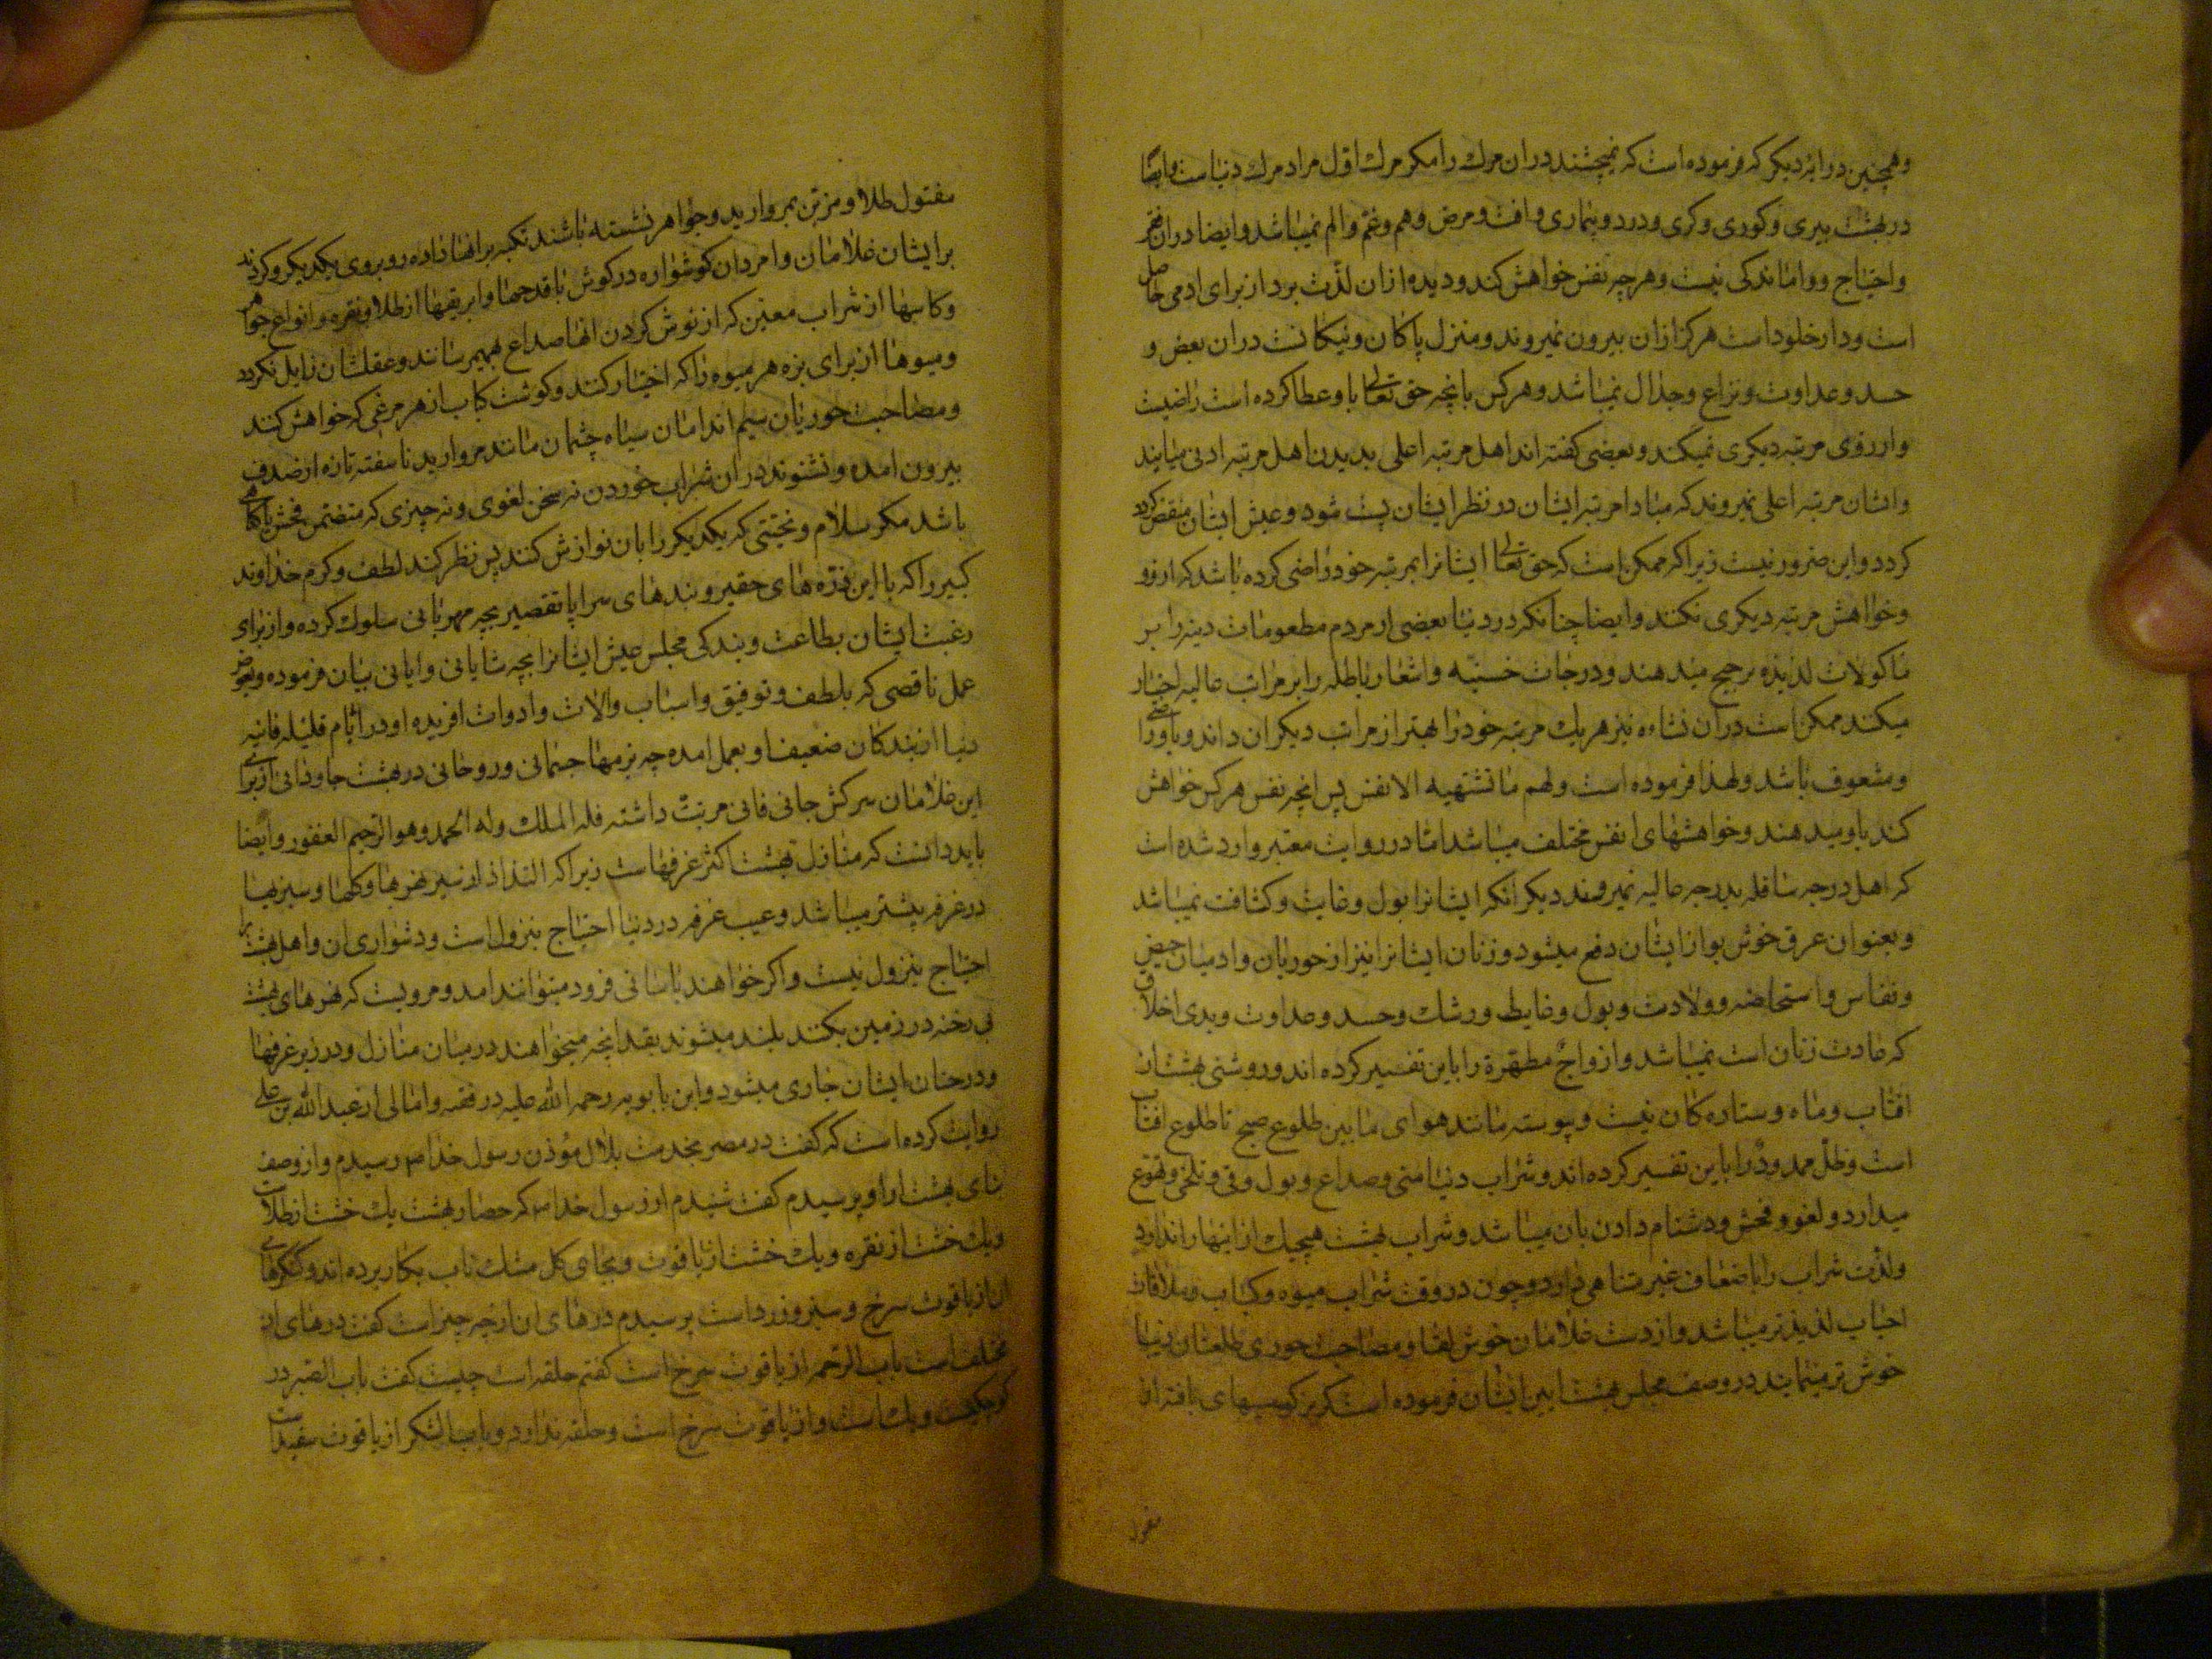 وهمچنین در ایهٔ دیکر که فرموده است که نمیچشند دران مرك را مکر مرك اوّل مراد مرك دنیاست وایضًا
در بهشت پیری وکوری وکری ودرد وبیماری وافت ومرض وهم وغم والم نمیباشد وایضا دران فقر
واحتیاج وواماندکی نیست وهرچه نفس خواهش کند ودیده ازان لذّت برد از برای ادمی حاصل
است ودار خلود است هرکز ازان بیرون نمیروند ومنزل پاکان ونیکانست دران بعض و
حسد وعداوت ونزاع وجدال نمیباشد وهرکس بانچه حق تعالی باو عطا کرده است راضیست
وارزوی مرتبه دیکری نمیکند وبعضی کفته اند اهل مرتبه اعلی بدیدن اهل مرتبه ادنی میایند
وایشان مرتبه اعلی نمیروند که مبادا مرتبه ایشان در نظر ایشان پست شود وعیش ایشان منقص کردد
کردد واین ضرور نیست زیرا که ممکن است که حق تعالی ایشانرا بمرتبه خود راضی کرده باشد که ارزو
وخواهش مرتبه دیکری نکنند وایضا چنانکه در دنیا بعضی از مردم مطعومات دینه را بر
ماکولات لذیذه ترجیح میدهند ودرجات خسیّه واشعار باطله را بر مراتب عالیه اختیار
میکند ممکن است دران نشاءه نیز هریك مرتبه خود را بهتر از مراتب دیکران داند وباو راضی
ومشعوف باشد ولهذا فرموده است ولهم ما تشتهیه الانفس پس انچه نفس هرکس خواهش
کند باو میدهند وخواهشهای انفس مختلف میباشد امّا در روایت معتبر وارد شده است
که اهل درجه سافله بدرجه عالیه نمیرسند دیکر انکه ایشانرا بول وغایط وکثافت نمیباشد
وبعنوان عرق خوش بو از ایشان دفع میشود وزنان ایشانرا نیز از حوریان وادمیان حیض
ونفاس واستحاضه وولادت وبول وغایط ورشك وحسد وعداوت وبدی اخلاق
که عادت زنان است نمیباشد وازواجٌ مطهّرة را باین تفسیر کرده اند وروشنی بهشت از
افتاب وماه وستاره کان نیست وپیوسته مانند هوای مابین طلوع صبح تا طلوع افتاب
است وظلّ ممدودٍ را باین تفسیر کرده اند وشراب دنیا مستی وصداع وبول وقی وتلخی وتهوّع
میدارد ولغو وفحش ودشنام دادن بان میباشد وشراب بهشت هیچیك از اینها را ندارد
ولذّت شراب را باضعاف غیر متناهی دارد وچون در وقت شراب میوه وکباب وملاقات
احباب لذیذتر میباشد واز دست غلامان خوش لقا ومصاحبت حوری طلعتان زیبا
خوش تر مینماید در وصف مجلس بهشت ایشان فرموده است که بر کرسیهای بافته از
مفتول
مفتول طلا ومزیّن بمروارید وجواهر نشسته باشند تکیه بر انها داده روبروی یکدیکر وکردند
بر ایشان غلامان وامردان کوشواره در کوش با قدحها وابریقها از طلا ونقره وانواع جواهر
وکاسها از شراب معین که از نوش کردن انها صداع بهم نرسانند وعقلشان زایل نکردد
ومیوها از برای بزه هر میوه را که اختیار کنند وکوشت کباب از هر مرغی که خواهش کنند
ومصاحبت حوریان سیم اندامان سیاه چشمان مانند مروارید ناسفته تازه از صدف
بیرون امده ونشنوند دران شراب خوردن نه سخن لغوی ونه چیزی که متضمن فحش یا کناهی
باشد مکر سلام وتحیّتی که یکدیکر را بان نوازش کنند پس نظر کند لطف وکرم خداوند
کبیر را که با این ذرّه های حقیر وبندهای سراپا تقصیر بچه مهربانی سلوك کرده واز برای
رغبت ایشان بطاعت وبندکی مجلس عیش ایشانرا بچه شایانی وایانی بیان فرموده وبعوض
عمل ناقصی که بلطف وتوفیق واسباب والات وادوات افریده او در ایّام قلیله فانیه
دنیا از بندکان ضعیف او بعمل امده چه بزمها جسمانی وروحانی در بهشت جاودانی از برای
این غلامان سرکش جانی فانی مرتب داشته فله الملك وله الحمد وهو الرّحیم الغفور وایضا
باید دانست که منازل بهشت اکثر غرفهاست زیرا که التذاذ از سیر نهرها وکلها وسبزیها
در غرفه بیشتر میباشد وعیب غرفه در دنیا احتیاج بنزول است ودشواری ان واهل بهشت را
احتیاج بنزول نیست واکر خواهند باسانی فرود میتوانند امد ومرویست که نهرهای بهشت
بی رخنه در زمین بکنند بلند میشوند بقدر انچه میخواهند در میان منازل ودر زیر غرفها
ودرختان ایشان جاری میشود وابن بابویه رحمه الله علیه در فقیه وامالی از عبد الله بن علی
روایت کرده است که کفت در مصر بخدمت بلال مؤذن رسول خدا ص رسیدم واز وصف
بنای بهشت از او پرسیدم کفت شنیدم از رسول خدا ص که حصار بهشت یك خشت از طلاست
ویك خشت از نقره ویك خشت از یاقوت وبجای کل مشك ناب بکار برده اند وکنکرهای
ان از یاقوت سرخ وسبز وزرد است پرسیدم درهای ان از چه چیز است کفت درهای ان
مختلف است باب الرّحمه از یاقوت سرخ است کفتم حلقه است چیست کفت باب الصّبر در
کوچکیست ویك است واز یاقوت سرخ است وحلقه ندارد وباب الشکر از یاقوت سفید است